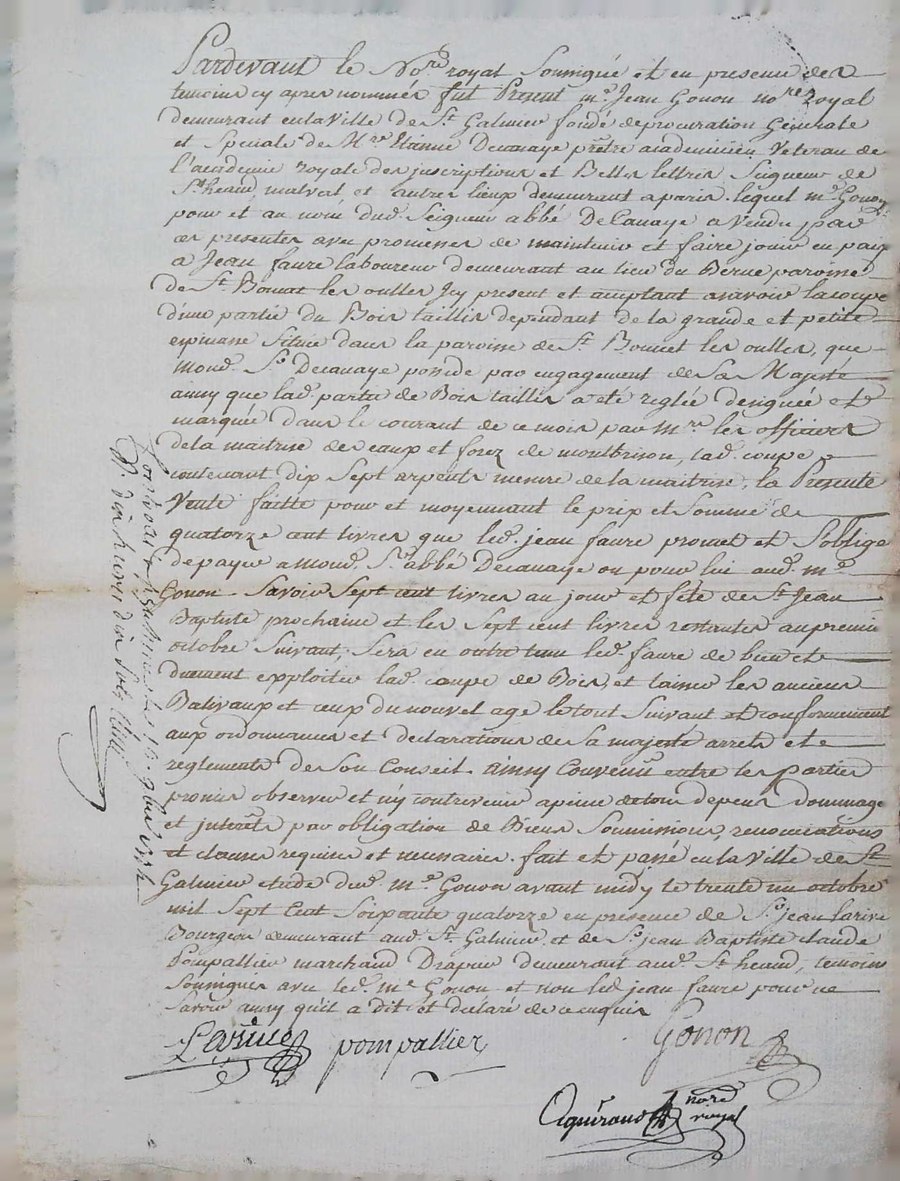 Pardevant le No.re royal Soussigné et en presence des
temoins cy apres nommés fut Present m.e Jean Gonon no.re Royal
demeurant en la Ville de S.t Galmier fondé de procuration Generale
et Speciale de M.re Etienne Decanaye prêtre academicien Veteran de
l'academie royale des jnscriptions et Belles lettres Seigneur de
S.t heand, malval et autres lieux demeurant a paris. lequel m.e Gonon
pour et au nom dud. Seigneur abbé De Canaye a Vendu par
ces presentes avec promesses de maintenir et faire jouir en paix
a Jean faure laboureur demeurant au lieu du paroisse
de S.t Bonnet les oulles Jcy present et acceptant a savoir la coupe
d'une partie du Bois taillis dependant de la grande et petite
espinasse Située dans la paroisse de S.t Bonnet les oulles, que
mond. S.r Decanaye possede par engagement de Sa Majesté
ainsy que lad. partie de Bois taillis a été reglée designée et
marquée dans le courant de ce mois par M.rs les officiers
de la maitrise des eaux et forez de montbrison, lad. coupe
contenant dix Sept arpents mesure de la maitrise, la Presente
Vente faitte pour et moyennant le prix et Somme de
quatorze cent livres que led. jean faure promet et S'oblige
de payer a mond. S.r abbé Decanaye ou pour lui aud. m.e
Gonon Savoir Sept cent livres au jour et fête de S.t Jean
Baptiste prochaine et les Sept cent livres restantes au premier
octobre Suivant, Sera en outre tenu led. faure de bien et
duement exploiter lad. coupe de Bois, et laisser les anciens
Balivaux et ceux du nouvel age le tout Suivant et conformement
aux ordonnances et declarations de Sa majesté arrets et
reglements de Son Conseil. ainsy Convenu entre les parties
promis observer et n'y contrevenir a peine de tous depens dommages
et jnterêts par obligation de Biens Soumissions, renonciations
et clauses requises et necessaires. fait et passé en la ville de S.t
Galmier etude dud. m.e Gonon avant midy le trente un octobre
mil Sept Cent Soixante quatorze en presence de S.r jean larive
Bourgeois demeurant aud. S.t Galmier et de S.r jean Baptiste claude
Pompallier marchand Drapier demeurant aud. S.t heand, temoins
Soussignés avec led. m.e Gonon et non led. jean faure pour ne
Savoir ainsy qu'il a dit et declaré de ce enquis
Larive pompallier Gonon
Aguiraud no.re royal